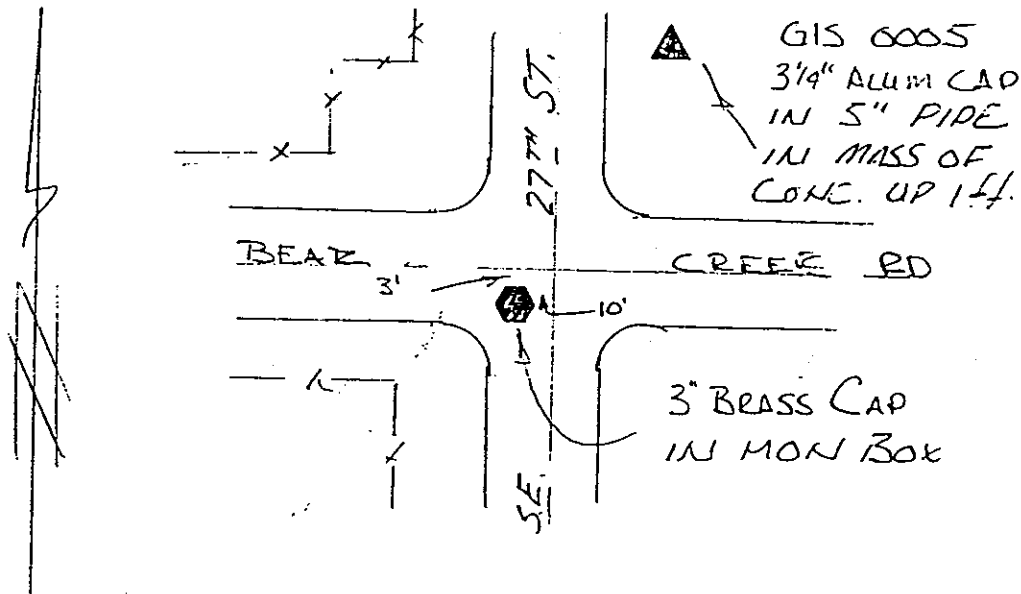 GIS 0005
3¼" ALUM CAP
IN 5" PIPE
IN MASS OF
CONC. UP 1 ft.
SE. 27TH ST.
BEAR CREEK RD
3'
10'
3" BRASS CAP
IN MON BOX